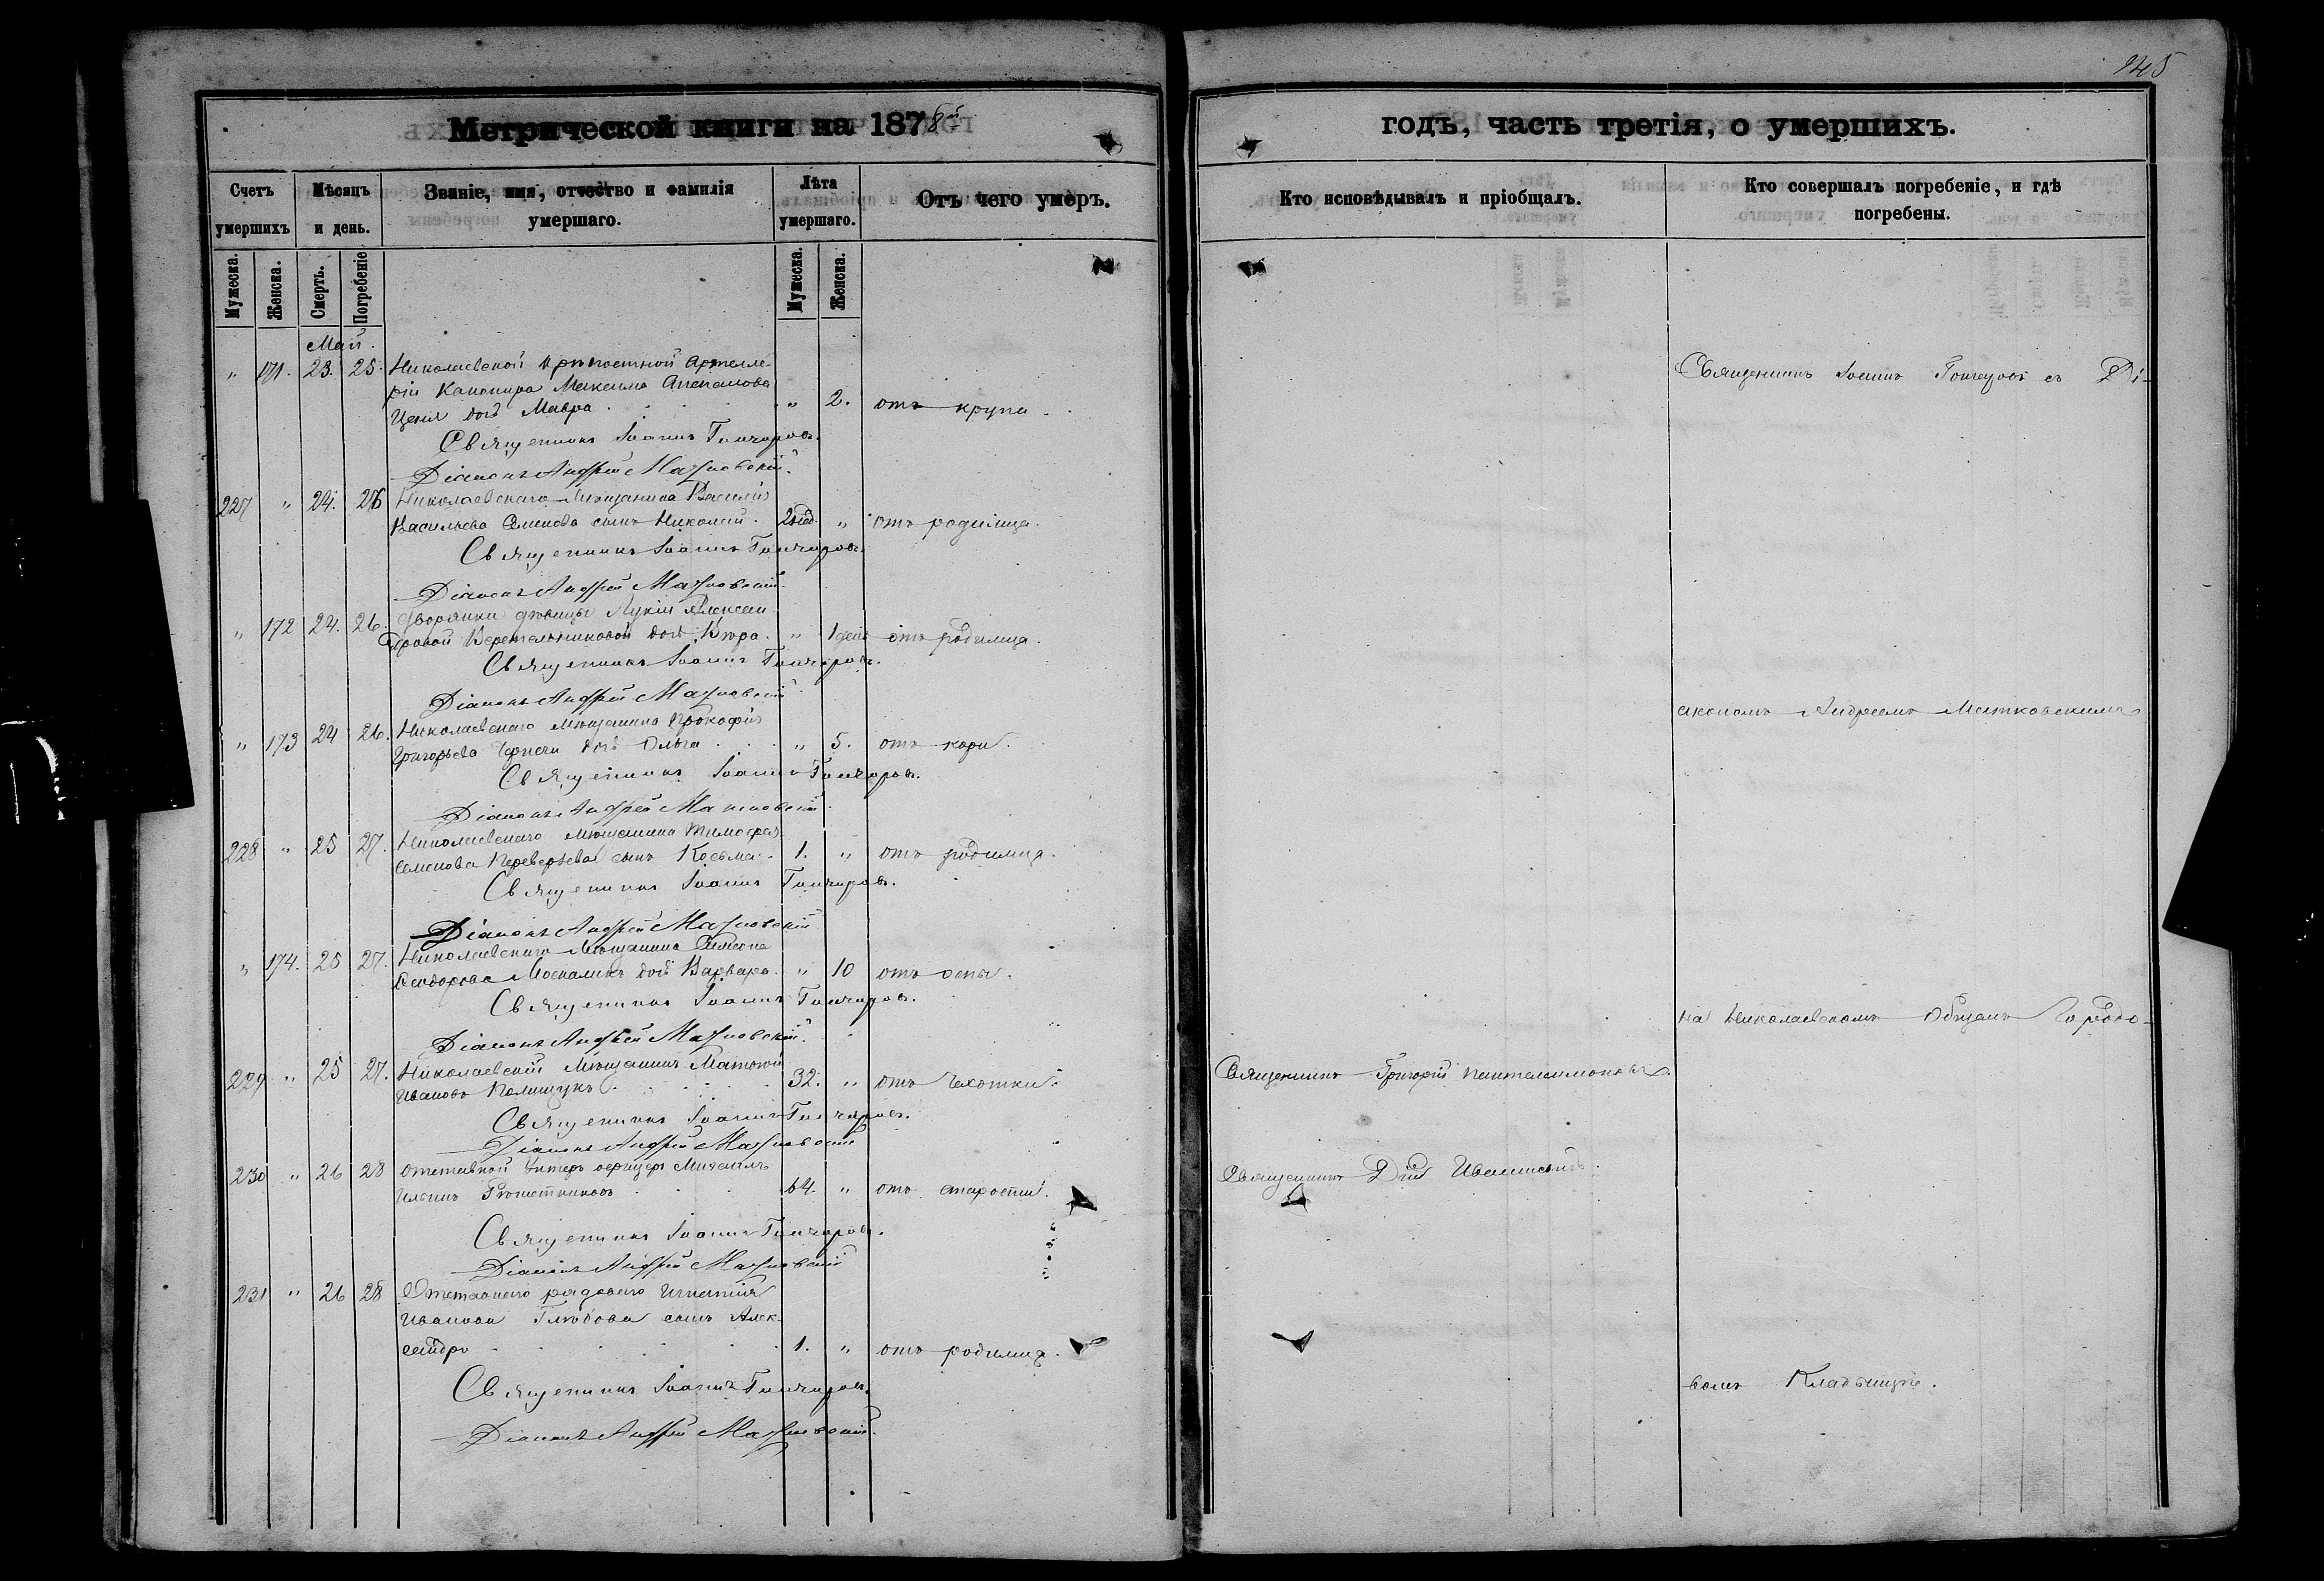 145
Метрической книги на 1878й
годъ, часть третія, о умершихъ.
Счетъ умершихъ
Мѣсяцъ и день.
Званіе, имя, отчество и фамилія умершаго.
Лѣта умершаго.
Отъ чего умеръ.
Кто исповѣдывалъ и пріобщалъ.
Кто совершалъ погребеніе, и гдѣ погребены.
Мужеска. Женска. Смерть. Погребеніе Мужеска. Женска.
Май.
" 171. 23. 25. Николаевской крѣпостной Артелле-
ріи Канонира Максима
дочь Мавра " 2. отъ крупа.
Священникъ Іоаннъ Гончаровъ.
Діаконъ Андрей Матковскій.
227 " 24. 26 Николаевскаго Мѣщанина Василія
Васильева Семенова сынъ Николай. 2 нед. " отъ родимца.
Священникъ Іоаннъ Гончаровъ.
Діаконъ Андрей Матковскій.
" 172 24. 26. Дворянки дѣвицы Лукіи Алексан-
дровой дочь Вѣра. " 1 день отъ родимца.
Священникъ Іоаннъ Гончаровъ.
Діаконъ Андрей Матковскій
" 173 24 26. Николаевскаго мѣщанина Прокофія
Григорьева дочь Ольга " 5. отъ кори.
Священникъ Іоаннъ Гончаровъ.
Діаконъ Андрей Матковскій.
228 " 25 27. Николаевскаго мѣщанина Тимофея
Семенова Переверзева сынъ Косьма. 1. " отъ родимца.
Священникъ Іоаннъ Гончаровъ.
Діаконъ Андрей Матковскій
" 174. 25 27. Николаевскаго Мѣщанина Симеона
Ѳеодорова Москалика дочь Варвара. " 10 отъ оспы.
Священникъ Іоаннъ Гончаровъ.
Діаконъ Андрей Матковскій.
229 " 25 27. Николаевскій Мѣщанинъ Матѳей
Ивановъ Полищукъ 32. " отъ чахотки.
Священникъ Іоаннъ Гончаровъ.
Діаконъ Андрей Матковскій
230 " 26 28 Отставной Унтеръ офицеръ Михаилъ
Ильинъ 64. " отъ старости.
Священникъ Іоаннъ Гончаровъ.
Діаконъ Андрей Матковскій
231 " 26 28 Отставнаго рядоваго Игнатія
Иванова сынъ Алек-
сандръ 1. " отъ родимца.
Священникъ Іоаннъ Гончаровъ.
Діаконъ Андрей Матковскій.
Священникъ Іоаннъ Гончаровъ съ Ді-
акономъ Андреемъ Матковскимъ
на Николаевскомъ Общемъ Городо-
Священникъ Григорій
Священникъ
вомъ Кладбищѣ.